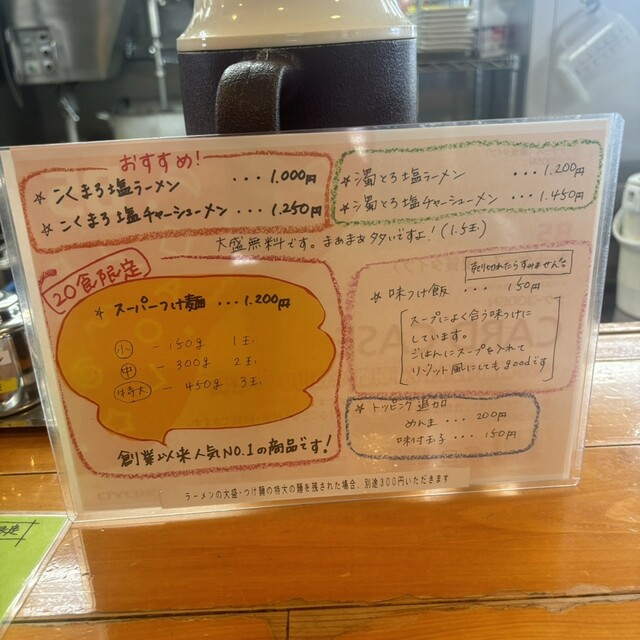 おすすめ!
☆ こくまろ塩ラーメン ・・・ 1.000円
☆ こくまろ塩チャーシューメン ・・・ 1.250円
☆ 濁とろ塩ラーメン ・・・ 1.200円
☆ 濁とろ塩チャーシューメン ・・・ 1.450円
大盛無料です。まあまあ多いですよ!(1.5玉)
20食限定
☆ スーパーつけ麺 ・・・ 1.200円
小 - 150g 1玉
中 - 300g 2玉
特大 - 450g 3玉
創業以来人気NO.1の商品です!
売り切れたらすみません
☆ 味つけ飯 ・・・ 150円
スープによく合う味つけに
しています。
ごはんにスープを入れて
リゾット風にしてもgoodです
☆ トッピング追加
めんま ・・・ 200円
味付玉子 ・・・ 150円
ラーメンの大盛・つけ麺の特大の麺を残された場合、別途300円いただきます